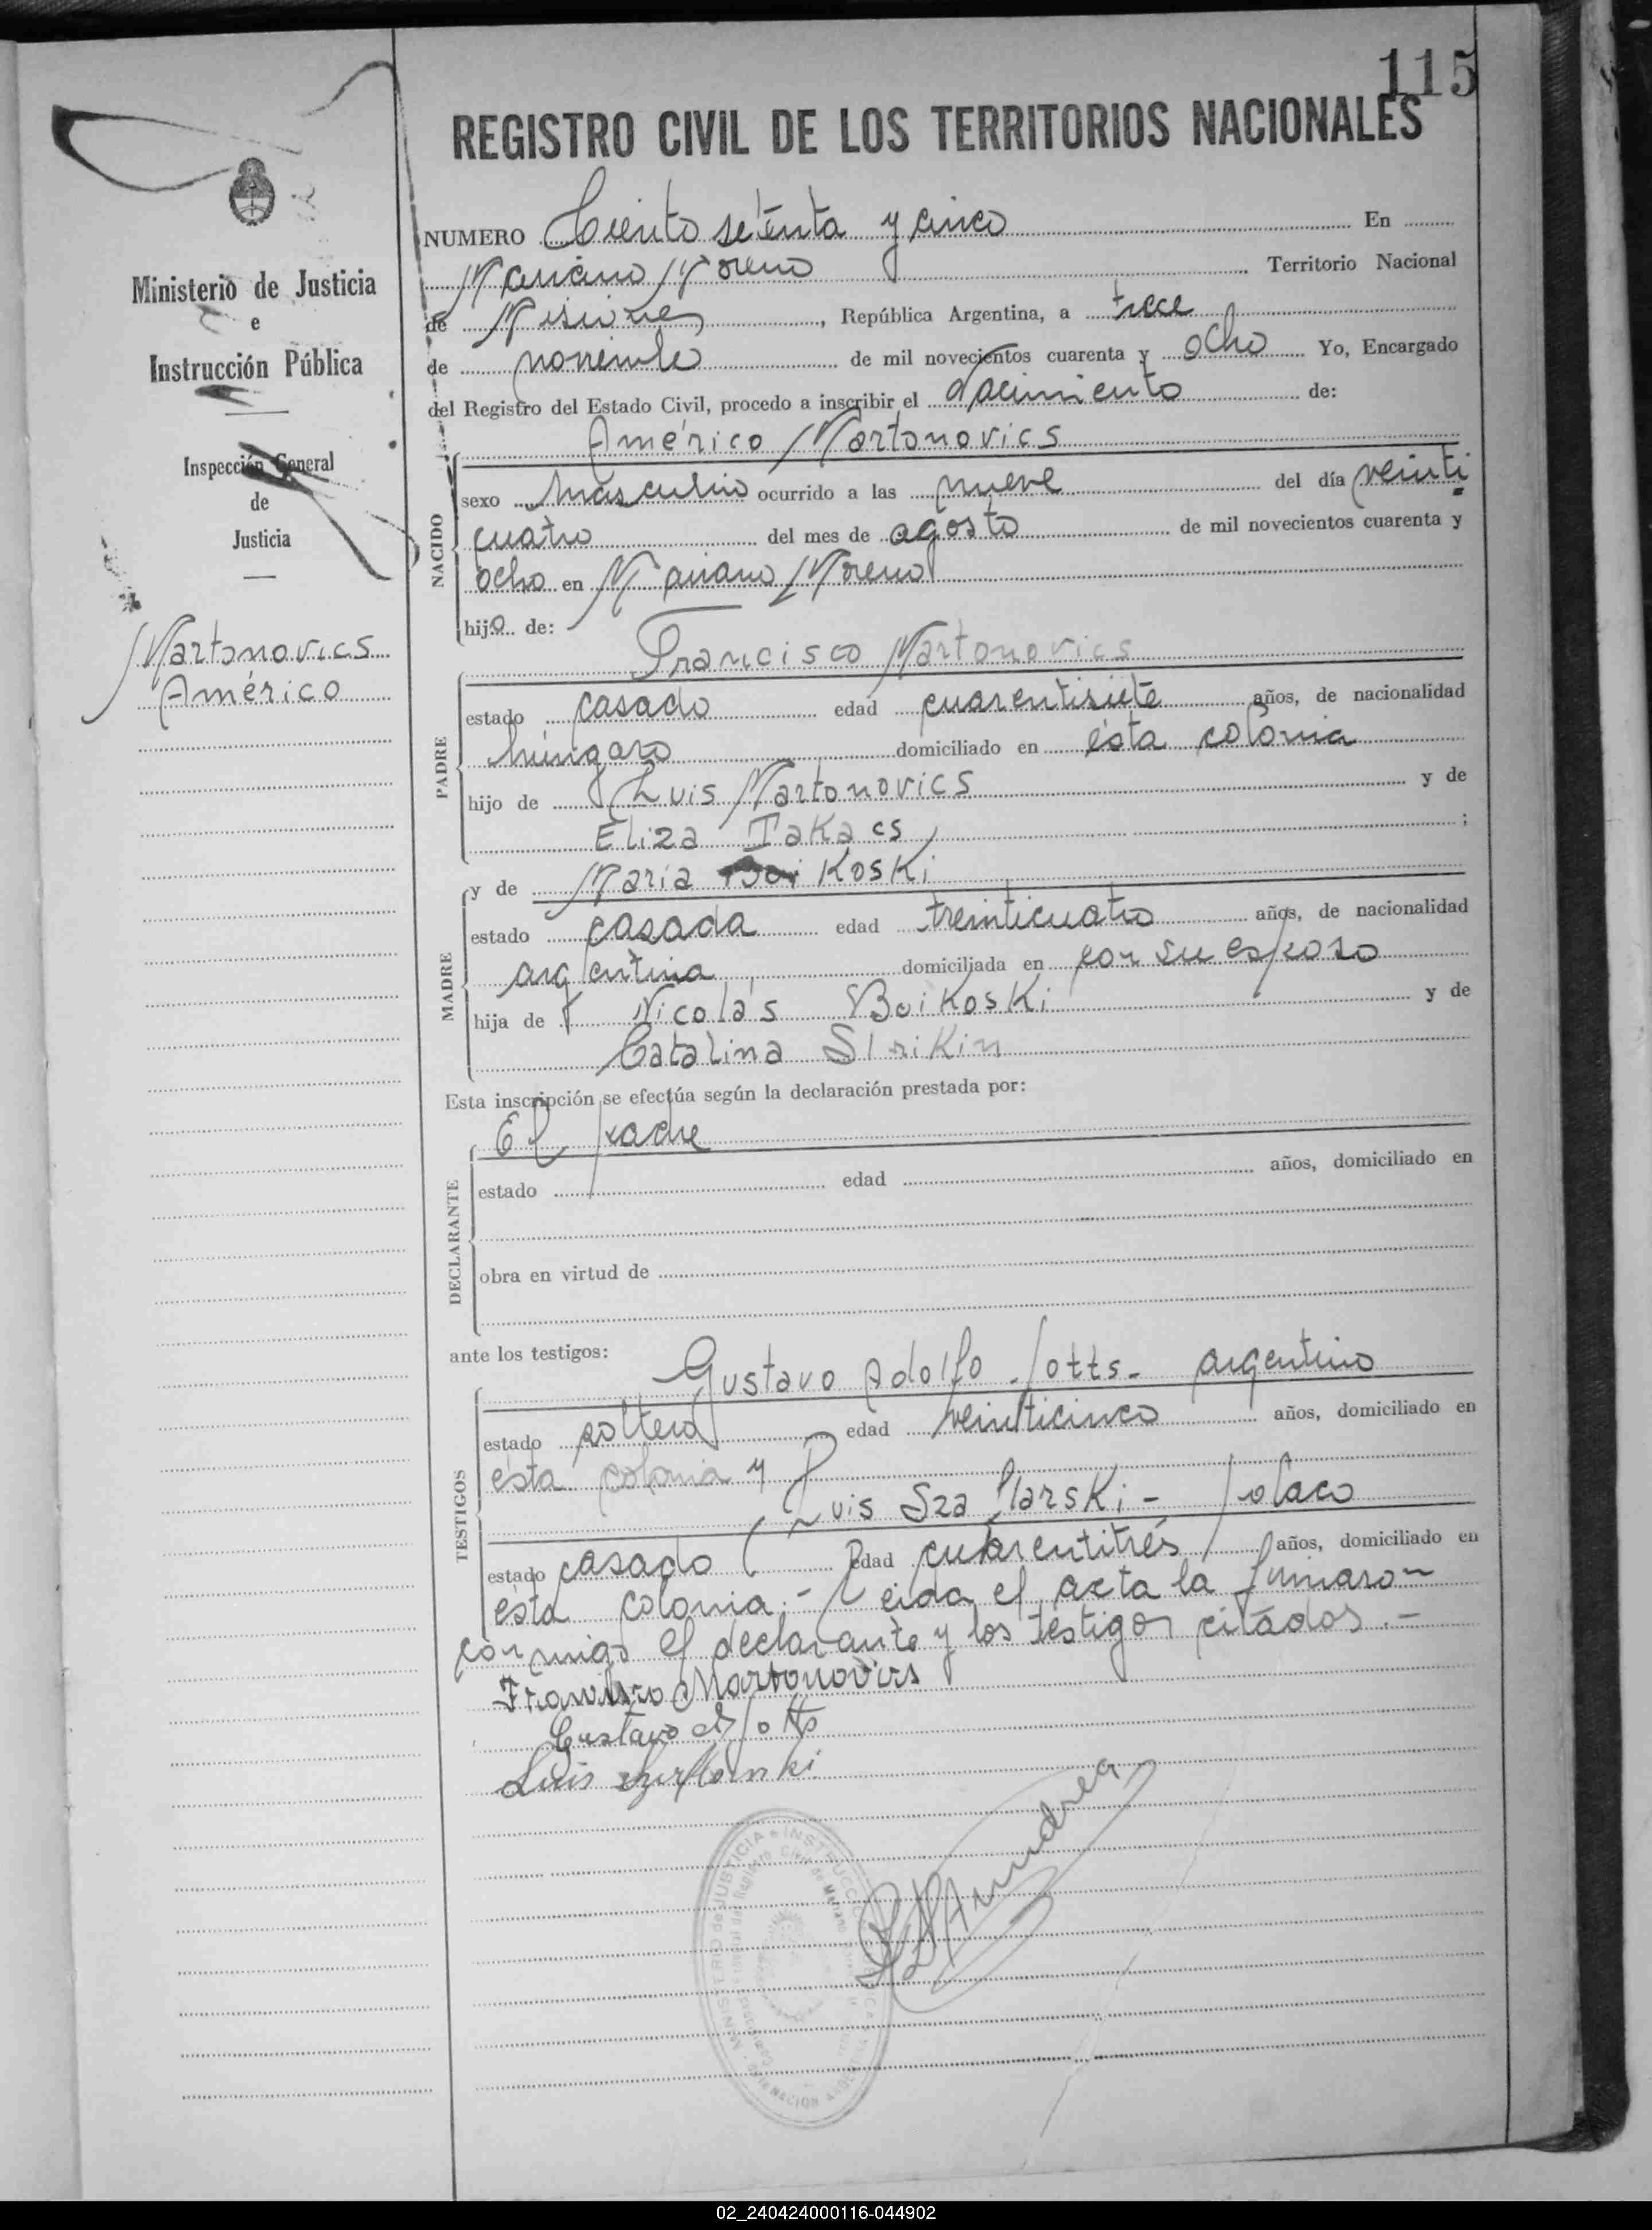 115
REGISTRO CIVIL DE LOS TERRITORIOS NACIONALES
NUMERO Ciento setenta y cinco En
Mariano Moreno Territorio Nacional
de Misiones, República Argentina, a trece
de noviembre de mil novecientos cuarenta y ocho Yo, Encargado
del Registro del Estado Civil, procedo a inscribir el nacimiento de:
Américo Martonovics
NACIDO
sexo masculino ocurrido a las nueve del día veinti
cuatro del mes de agosto de mil novecientos cuarenta y
ocho en Mariano Moreno
hijo de:
Francisco Martonovics
PADRE
estado casado edad cuarentisiete años, de nacionalidad
húngaro domiciliado en ésta colonia
hijo de Luis Martonovics y de
Eliza Takacs ;
y de Maria Boikoski
MADRE
estado casada edad treinticuatro años, de nacionalidad
argentina domiciliada en con su esposo
hija de Nicolás Boikoski y de
Catalina
Esta inscripción se efectúa según la declaración prestada por:
El padre
DECLARANTE
estado edad años, domiciliado en
obra en virtud de
ante los testigos:
Gustavo Adolfo argentino
TESTIGOS
estado soltero edad veinticinco años, domiciliado en
ésta colonia y
Luis - polaco
estado casado edad cuarentitrés años, domiciliado en
ésta colonia.- Leida el acta la firmaron
conmigo el declarante y los testigos citados.-
Francisco Martonovics
Gustavo
Luis
MINISTERIO de JUSTICIA e INSTRUCCION PUBLICA
Ministerio de Justicia
e
Instrucción Pública
Inspección General
de
Justicia
Martonovics
Américo
02_240424000116-044902